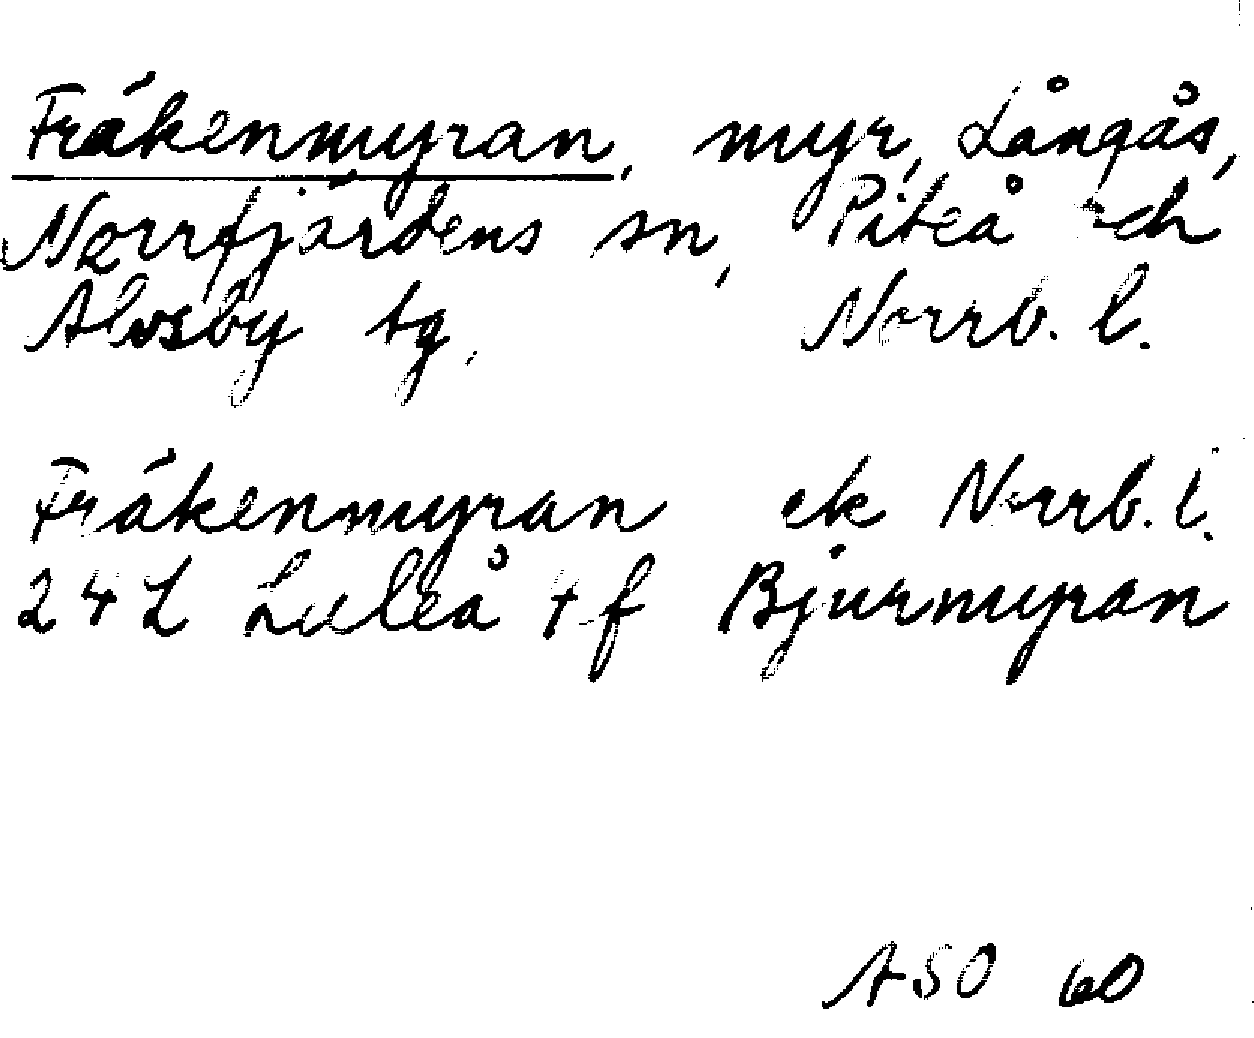 Fräkenmyran, myr, Långås,
Norrfjärdens sn, Piteå och
Älvsby tg. Norrb. l.
Fräkenmyran ek Norrb. l.
24L Luleå tf Bjurmyran
ASO 60